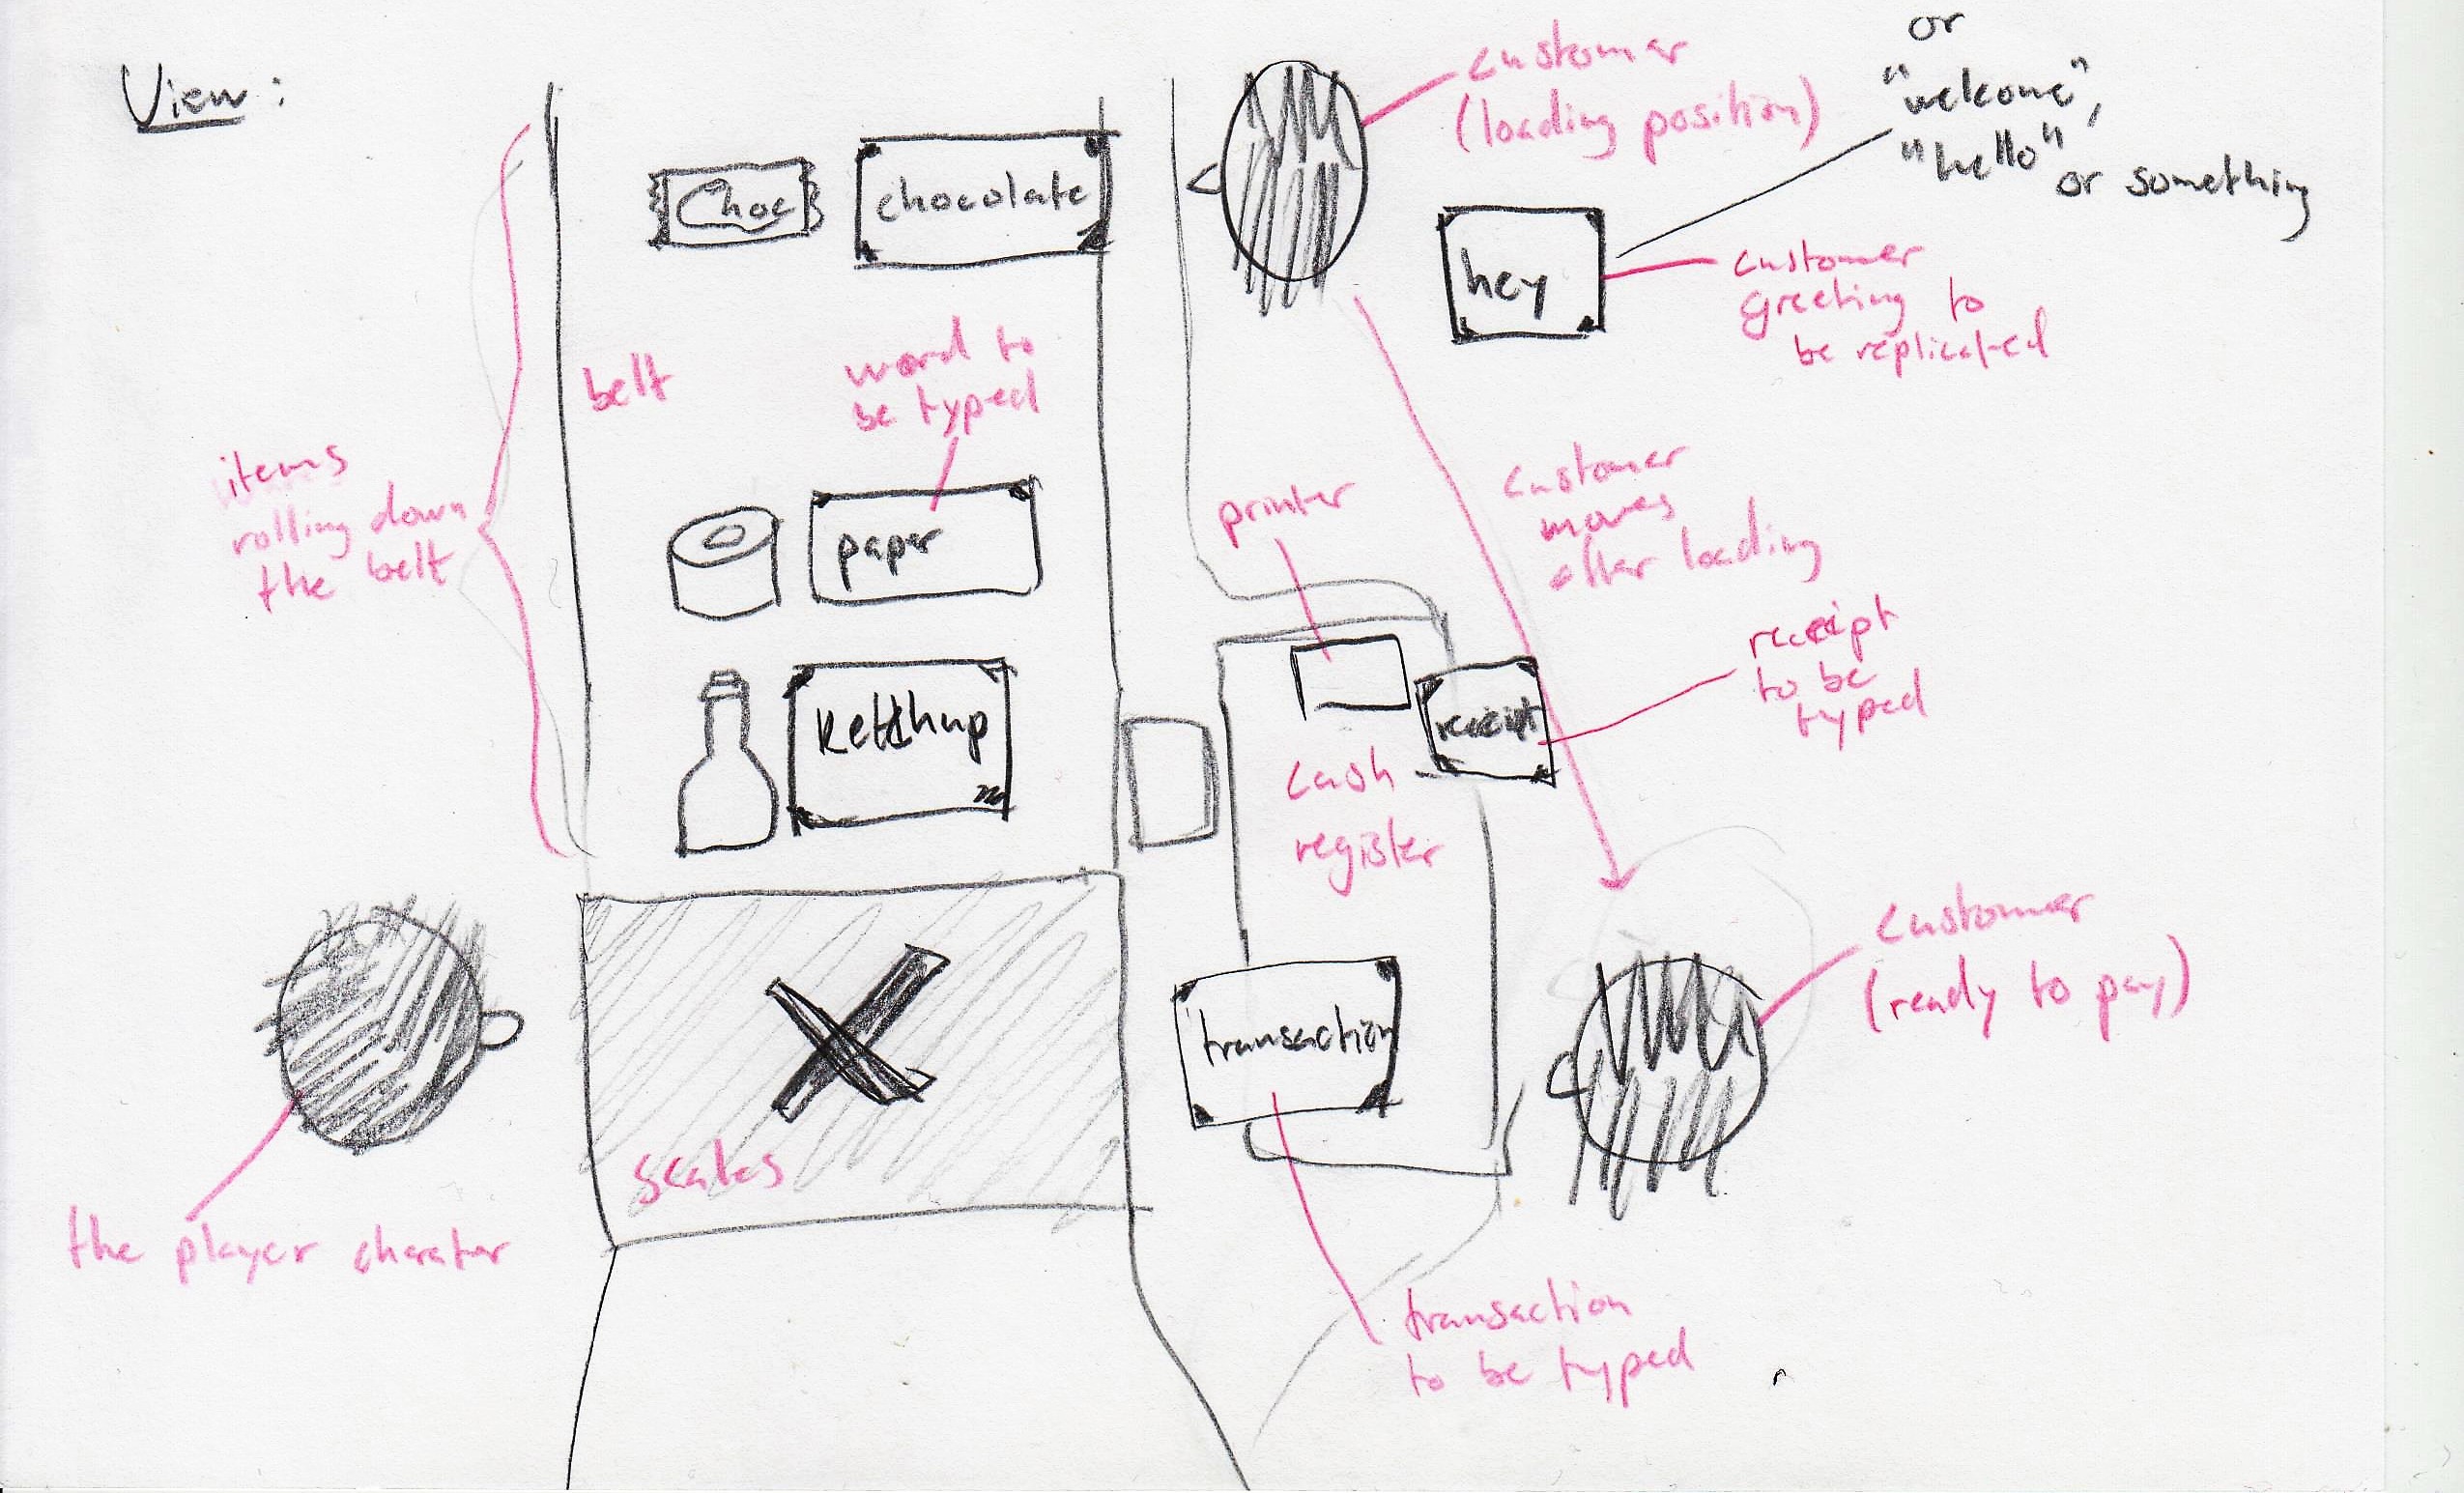 View:
Choc
chocolate
customer
(loading position)
or
"welcome",
"hello" or something
hey
customer
greeting to
be replicated
belt
word to
be typed
items
rolling down
the belt
paper
printer
customer
moves
after loading
Ketchup
receipt
receipt
to be
typed
cash
register
customer
(ready to pay)
transaction
scales
the player charater
transaction
to be typed